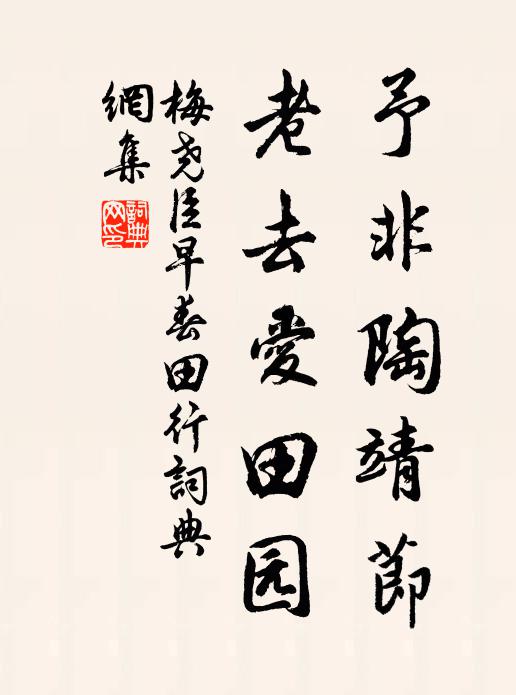 予非陶靖節
老去愛田园
梅尧臣早春田行詞典
網集
詞典
网印